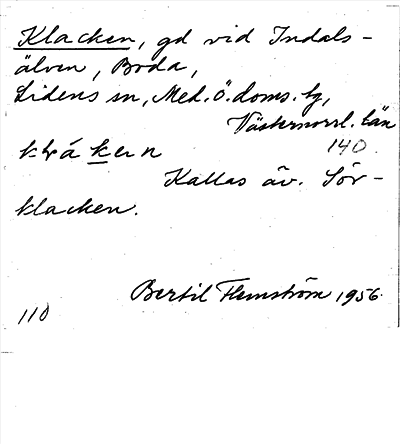 Klacken, gd vid Indals-
älven, Boda,
Lidens sn, Med. Ö. doms. tg,
Västernorrl. län
140
Kallas äv. Sör-
klacken.
Bertil Flemström 1956.
110